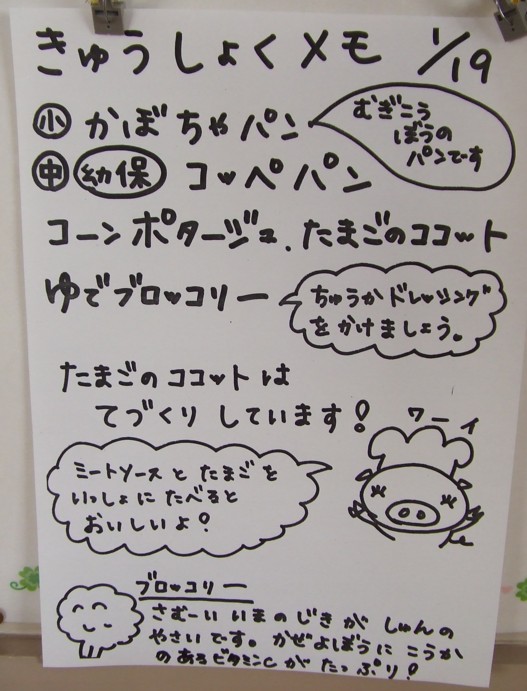 きゅうしょくメモ 1/19
小 かぼちゃパン
むぎこう
ぼうの
パンです
中 幼保 コッペパン
コーンポタージュ、たまごのココット
ゆでブロッコリー
ちゅうかドレッシング
をかけましょう。
たまごのココットは
てづくりしています!
ワーイ
ミートソースとたまごを
いっしょにたべると
おいしいよ!
ブロッコリー
さむーいいまのじきがしゅんの
やさいです。かぜよぼうにこうか
のあるビタミンCがたっぷり!